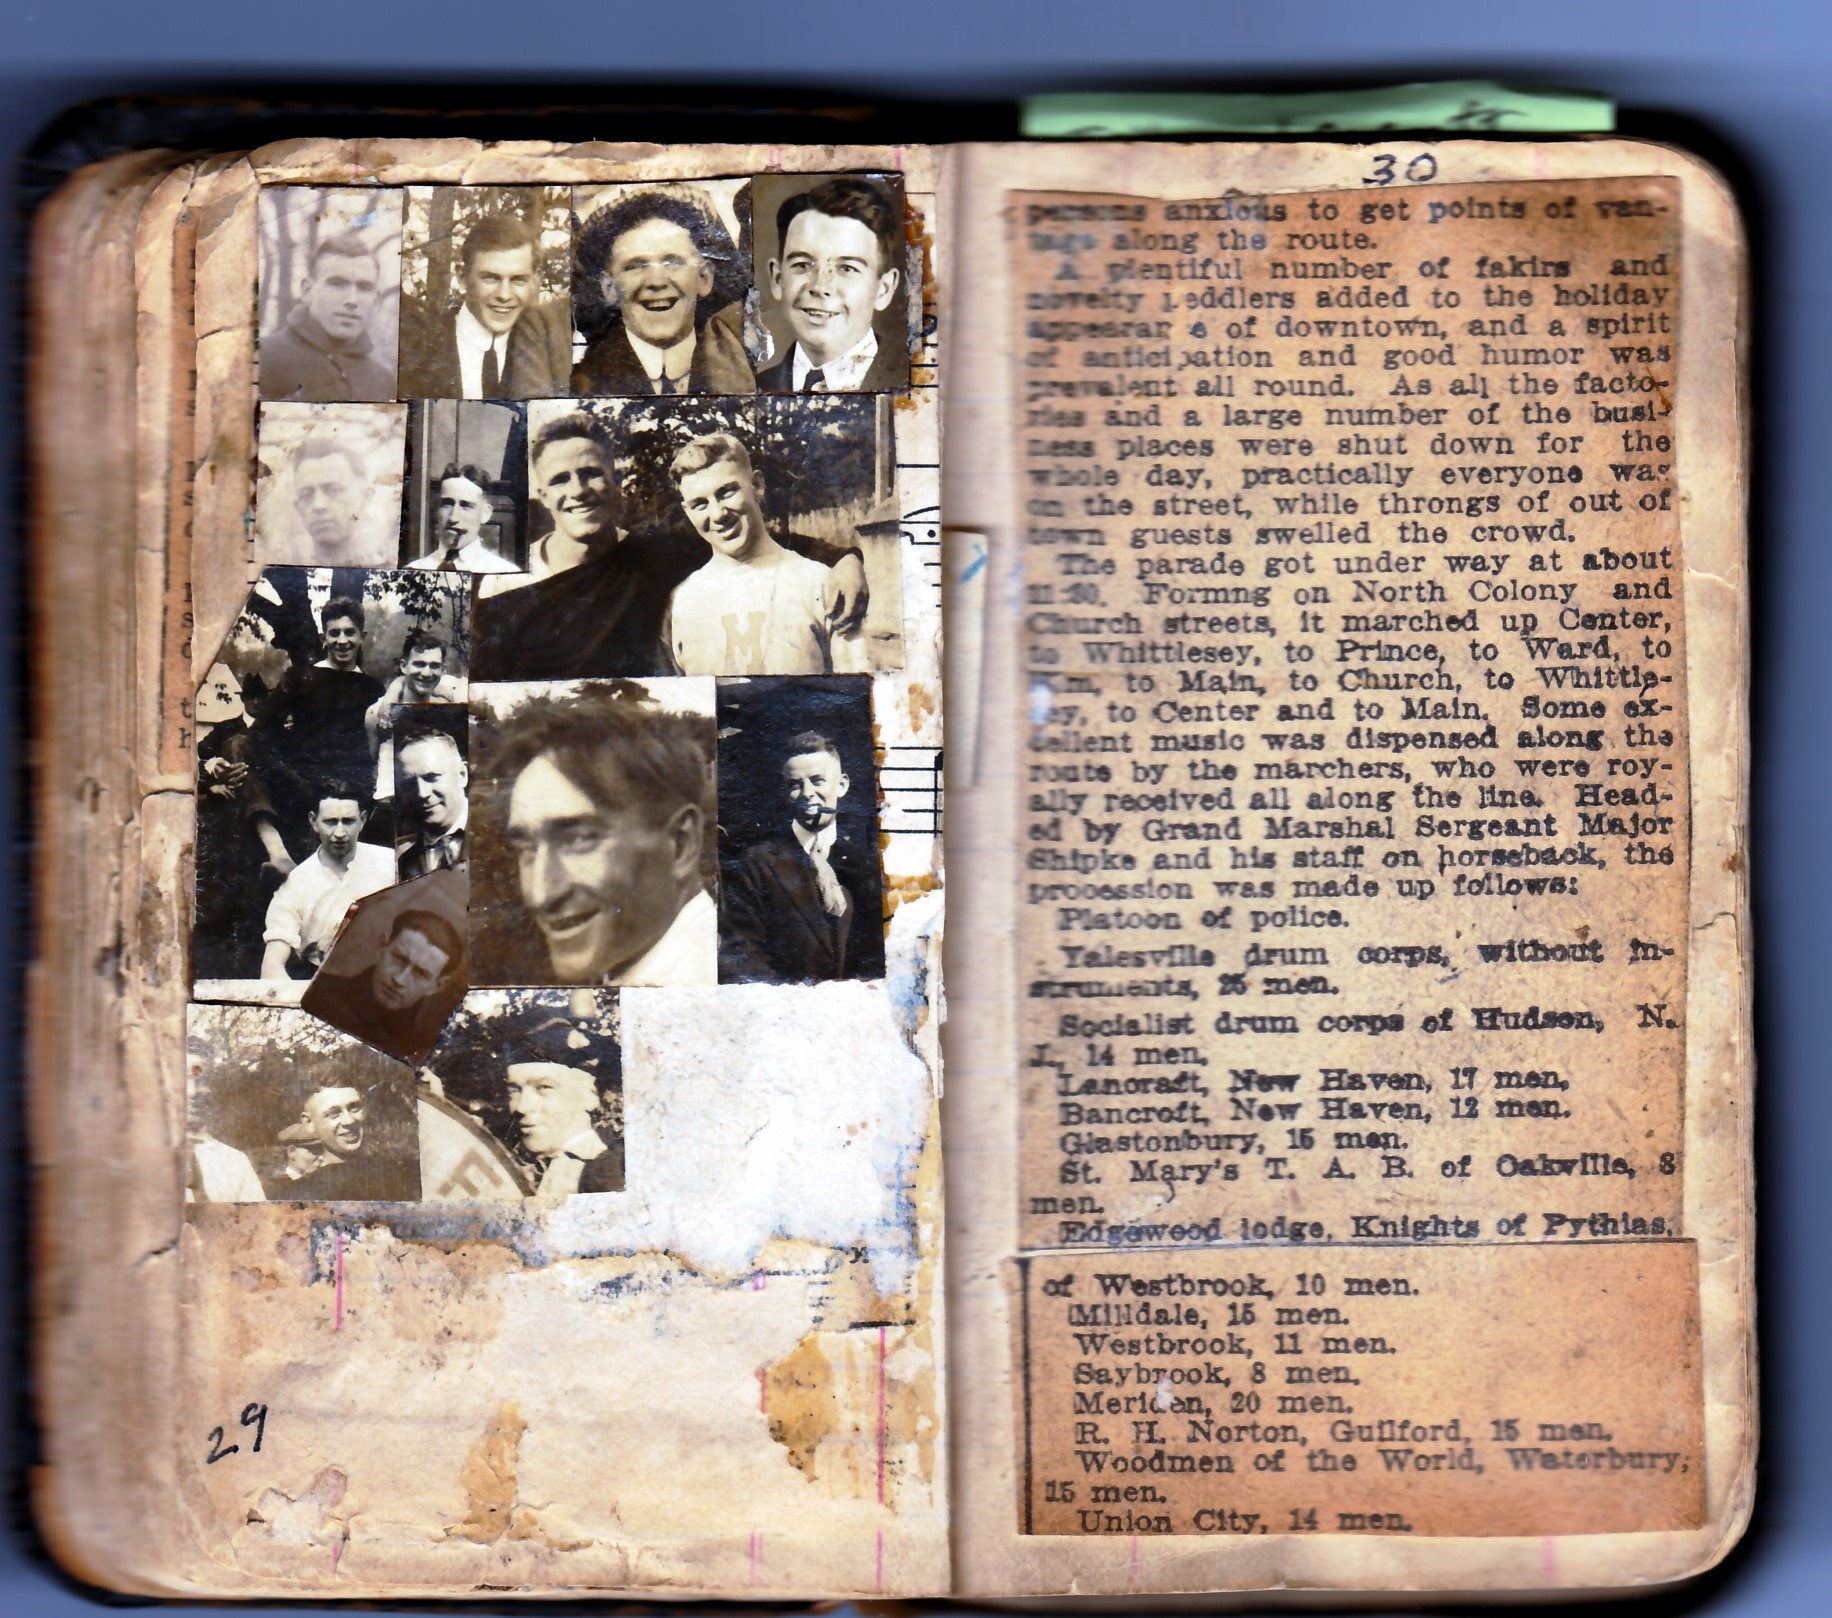 M
29
30
persons anxious to get points of van-
tage along the route.
A plentiful number of fakirs and
novelty peddlers added to the holiday
of downtown, and a spirit
of anticipation and good humor was
prevalent all round. As all the facto-
ries and a large number of the busi-
ness places were shut down for the
whole day, practically everyone was
on the street, while throngs of out of
town guests swelled the crowd.
The parade got under way at about
11:30. Formng on North Colony and
Church streets, it marched up Center,
to Whittlesey, to Prince, to Ward, to
to Main, to Church, to Whittle-
sey, to Center and to Main. Some ex-
cellent music was dispensed along the
route by the marchers, who were roy-
ally received all along the line. Head-
ed by Grand Marshal Sergeant Major
Shipke and his staff on horseback, the
procession was made up follows:
Platoon of police.
Yalesville drum corps, without in-
struments, 25 men.
Socialist drum corps of Hudson, N.
J., 14 men.
Lancraft, New Haven, 17 men,
Bancroft, New Haven, 12 men.
Glastonbury, 15 men.
St. Mary's T. A. B. of Oakville, 8
men.
Edgewood lodge, Knights of Pythias,
of Westbrook, 10 men.
Milldale, 15 men.
Westbrook, 11 men.
Saybrook, 8 men.
Meriden, 20 men.
R. H. Norton, Guilford, 15 men.
Woodmen of the World, Waterbury,
15 men.
Union City, 14 men.